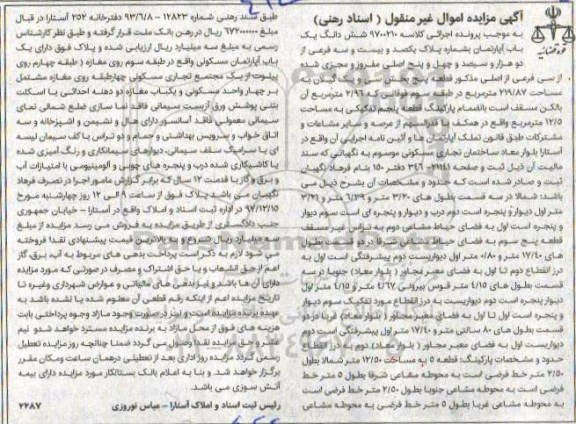 آگهی مزایده اموال غیر منقول ( اسناد رهنی)
به موجب پرونده اجرائی کلاسه ۹۷۰۰۲۱۰ شش دانگ یک
باب آپارتمان بشماره پلاک یکصد و بیست و سه فرعی از
دو هزار و سیصد و چهل و پنج اصلی مفروز و مجزی شده
از سی فرعی از اصلی مذکور قطعه پنج
مساحت ۲۱۹/۸۷ مترمربع در طبقه سوم که ۲/۹۶ متر آن
بالکن مسقف است بانضمام پارکینگ قطعه پنجم تفکیکی به مساحت
۱۲/۵ مترمربع واقع در همکف با قدرالسهم از عرصه و سایر مشاعات و
مشترکات طبق قانون تملک آپارتمان ها و آئین نامه اجرایی آن واقع در
آستارا بلوار معاد ساختمان تجاری مسکونی موسوم به نگهبانی که سند
مالکیت آن ذیل ثبت و صفحه ۲۱۱۴۱- ۳۴۶ دفتر ۱۵۰ بنام فرهاد نگهبان
ثبت و صادر شده است که حدود و مشخصات آن بشرح ذیل می
باشد: شمالا در سه قسمت طول های ۳/۲۰ متر و ۶/۲۹ متر و ۳/۲۱
متر اول دیوار و پنجره است دوم درب و دیوار و پنجره ای است سوم دیوار
و پنجره است اول به فضای حیاط مشاعی دوم به تراس غیر مسقف
قطعه پنج سوم به فضای حیاط مشاعی شرقا در دو قسمت بطول
های ۱۷/۴۰ متر و ۰/۸۰ متر اول دیواریست دوم پیشرفتگی است اول به
درز انقطاع دوم تا اول به فضای معبر مجاور ( بلوار معاد) جنوبا در سه
قسمت بطول های ۴/۱۵ متر قوس بیرونی ۴/۶۷ متر و ۴/۱۵ متر اول
دیوار پنجره است دوم دیواریست به درز انقطاع مورد تفکیک سوم دیوار
و پنجره است اول تا اول به فضای معبر مجاور ( بلوار معاد) غربا در دو
قسمت بطول های ۸۰ سانتی متر و ۱۷/۴۰ متر اول پیشرفتگی است دوم
دیواریست اول به فضای معبر مجاور ( بلوار معاد) دوم به درز انقطاع
حدود و مشخصات پارکینگ: قطعه ۵ به مساحت ۱۲/۵۰ متر شمالا بطول
۲/۵۰ متر خط فرضی است به محوطه مشاعی شرقا بطول ۵ متر خط
فرضی است به محوطه مشاعی جنوبا بطول ۲/۵۰ متر خط فرضی است
به محوطه مشاعی غربا بطول ۵ متر خط فرضی به محوطه مشاعی
طبق سند رهنی شماره ۱۲۸۲۳ – ۹۳/۶/۸ دفترخانه ۲۵۲ آستارا در قبال
مبلغ ۶۷۲۰۰۰۰۰۰۰ ریال در رهن بانک ملت قرار گرفته و طبق نظر کارشناس
رسمی به مبلغ سه میلیارد ریال ارزیابی شده و پلاک فوق دارای یک
باب آپارتمان مسکونی واقع در طبقه سوم روی مغازه ( طبقه چهارم روی
پیلوت از یک مجتمع تجاری مسکونی چهارطبقه روی مغازه مشتمل
بر چهار واحد مسکونی و یکباب مغازه دو دهنه احداثی با اسکلت
بتنی پوشش ورق آزبست سیمانی فاقد نما سازی ضلع شمالی نمای
سیمانی معمولی فاقد آسانسور دارای هال و نشیمن و آشپزخانه و سه
اتاق خواب و سرویس بهداشتی و حمام و دو تراس با کف سیمان لیسه
ای یا سرامیک سقف سیمانی، دیوارهای سیمانکاری و رنگ آمیزی شده
یا کاشیکاری شده درب و پنجره های چوبی و آلومینیومی با امتیازات آب
و برق و گاز با قدمت ۱۲ سال که برابر گزارش مامور اجرا در تصرف فرهاد
نگهبان می باشد پلاک فوق از ساعت ۹ الی ۱۲ روز چهارشنبه مورخ
۹۷/۱۲/۱۵ در اداره ثبت اسناد و املاک واقع در آستارا – خیابان جمهوری
جنب دادگستری از طریق مزایده به فروش می رسد مزایده از مبلغ
سه میلیارد ریال شروع و به بالاترین قیمت پیشنهادی نقدا فروخته
می شود لازم به ذکر است پرداخت بدهی های مربوط به آب، برق، گاز
اعم از حق انشعاب و یا حق اشتراک و مصرف در صورتی که مورد مزایده
دارای آن ها باشد و نیز بدهی های مالیاتی و عوارض شهرداری و غیره تا
تاریخ مزایده اعم از اینکه رقم قطعی آن معلوم شده یا نشده باشد به
عهده برنده مزایده است و نیز در صورت وجود مازاد وجوه پرداختی بابت
هزینه های فوق از محل مازاد به برنده مزایده مسترد خواهد شد و نیم
عشر و حق مزایده نقدا وصول می گردد ضمنا چنانچه روز مزایده تعطیل
رسمی گردد مزایده روز اداری بعد از تعطیلی در همان ساعت و مکان مقرر
برگزار خواهد شد. و بنا به اعلام بانک بستانکار مورد مزایده دارای بیمه
آتش سوزی می باشد.
رئیس ثبت اسناد و املاک آستارا – عباس نوروزی
۲۲۸۷